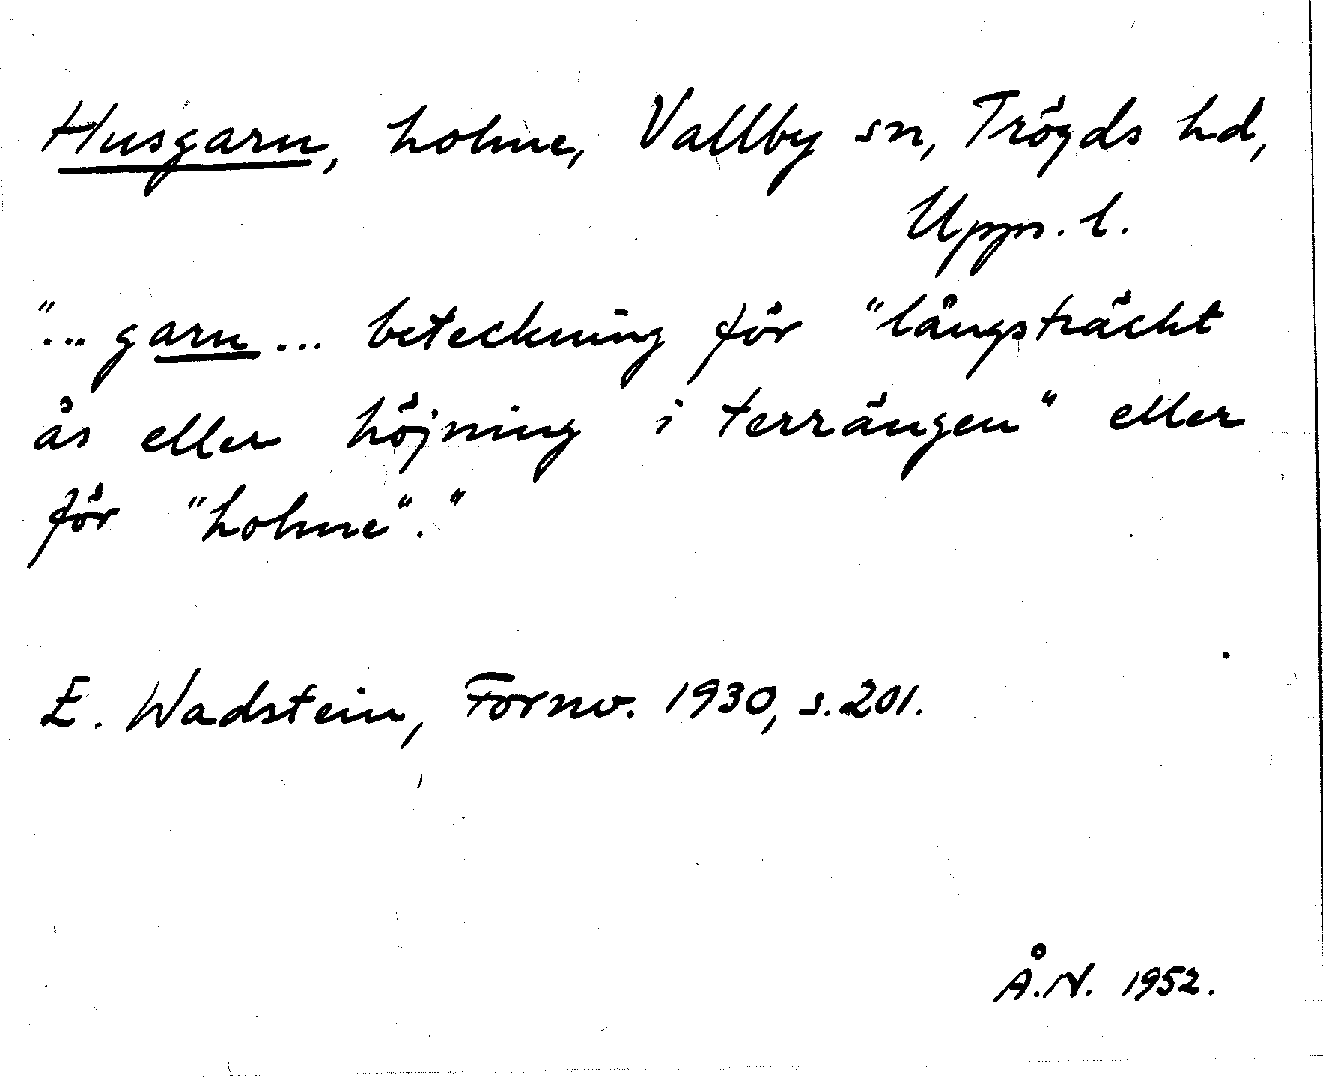 Husgarn, holme, Vallby sn, Trögds hd,
Upps. l.
"... garn ... beteckning för "långsträckt
ås eller höjning i terrängen" eller
för "holme"."
E. Wadstein, Fornv. 1930, s. 201.
Å.N. 1952.